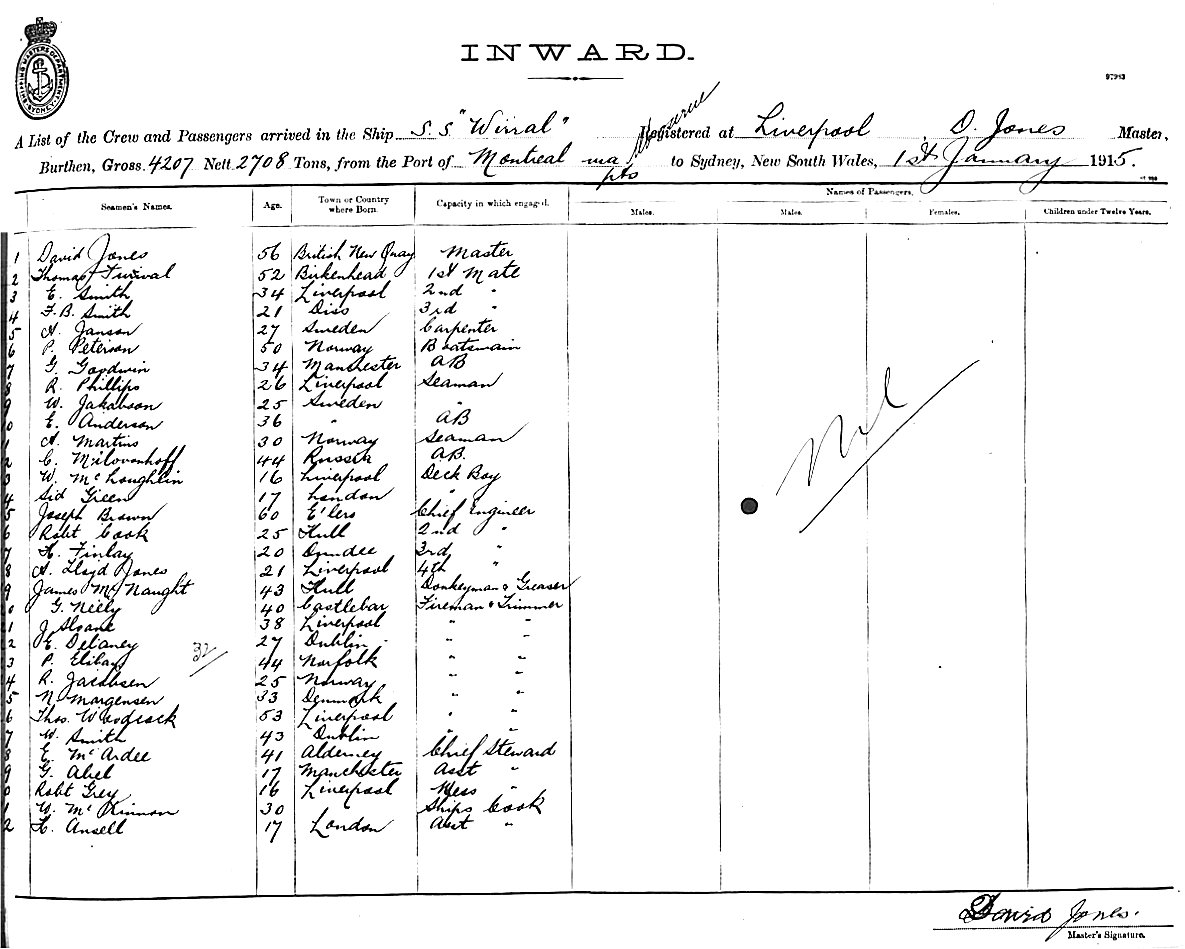 INWARD.
SHIPPING MASTERS DEPARTMENT SYDNEY
A List of the Crew and Passengers arrived in the Ship S.S. "Wirral" Registered at Liverpool D. Jones Master,
Burthen, Gross 4207 Nett 2708 Tons, from the Port of Montreal via pts to Sydney, New South Wales, 1st January 1915.
Names of Passengers.
Seamen's Names. Age. Town or Country where Born. Capacity in which engaged. Males. Males. Females. Children under Twelve Years.
1 David Jones 56 British New Quay Master
2 Thomas 52 Birkenhead 1st Mate
3 E. Smith 34 Liverpool 2nd "
4 F. B. Smith 21 Diss 3rd "
5 A. Janson 27 Sweden Carpenter
6 P. Peterson 50 Norway Boatswain
7 G. Goodwin 34 Manchester AB
8 R. Phillips 26 Liverpool Seaman
9 W. Jakobson 25 Sweden "
0 E. Anderson 36 " AB
1 A. Martins 30 Norway Seaman
2 C. 44 Russia A.B.
3 W. McLoughlin 16 Liverpool Deck Boy
4 Sid Green 17 London "
5 Joseph Brown 60 Chief Engineer
6 Robt Cook 25 Hull 2nd "
7 H. Finlay 20 Dundee 3rd "
8 A. Lloyd Jones 21 Liverpool 4th "
9 James McNaught 43 Hull Donkeyman & Greaser
0 G. Neely 40 Castlebar Fireman & Trimmer
1 J. Sloane 38 Liverpool " "
2 E. Delaney 27 Dublin " "
32
3 P. 44 Norfolk " "
4 R. Jacobsen 25 Norway " "
5 N. Morgensen 33 Denmark " "
6 Thos. Woodcock 53 Liverpool " "
7 W. Smith 43 Dublin " "
8 E. McArdee 41 Alderney Chief Steward
9 G. Abel 17 Manchester Asst "
0 Robt Grey 16 Liverpool Mess "
1 W. McKinnon 30 " Ships Cook
2 H. Ansell 17 London Asst "
Nil
David Jones.
Master's Signature.